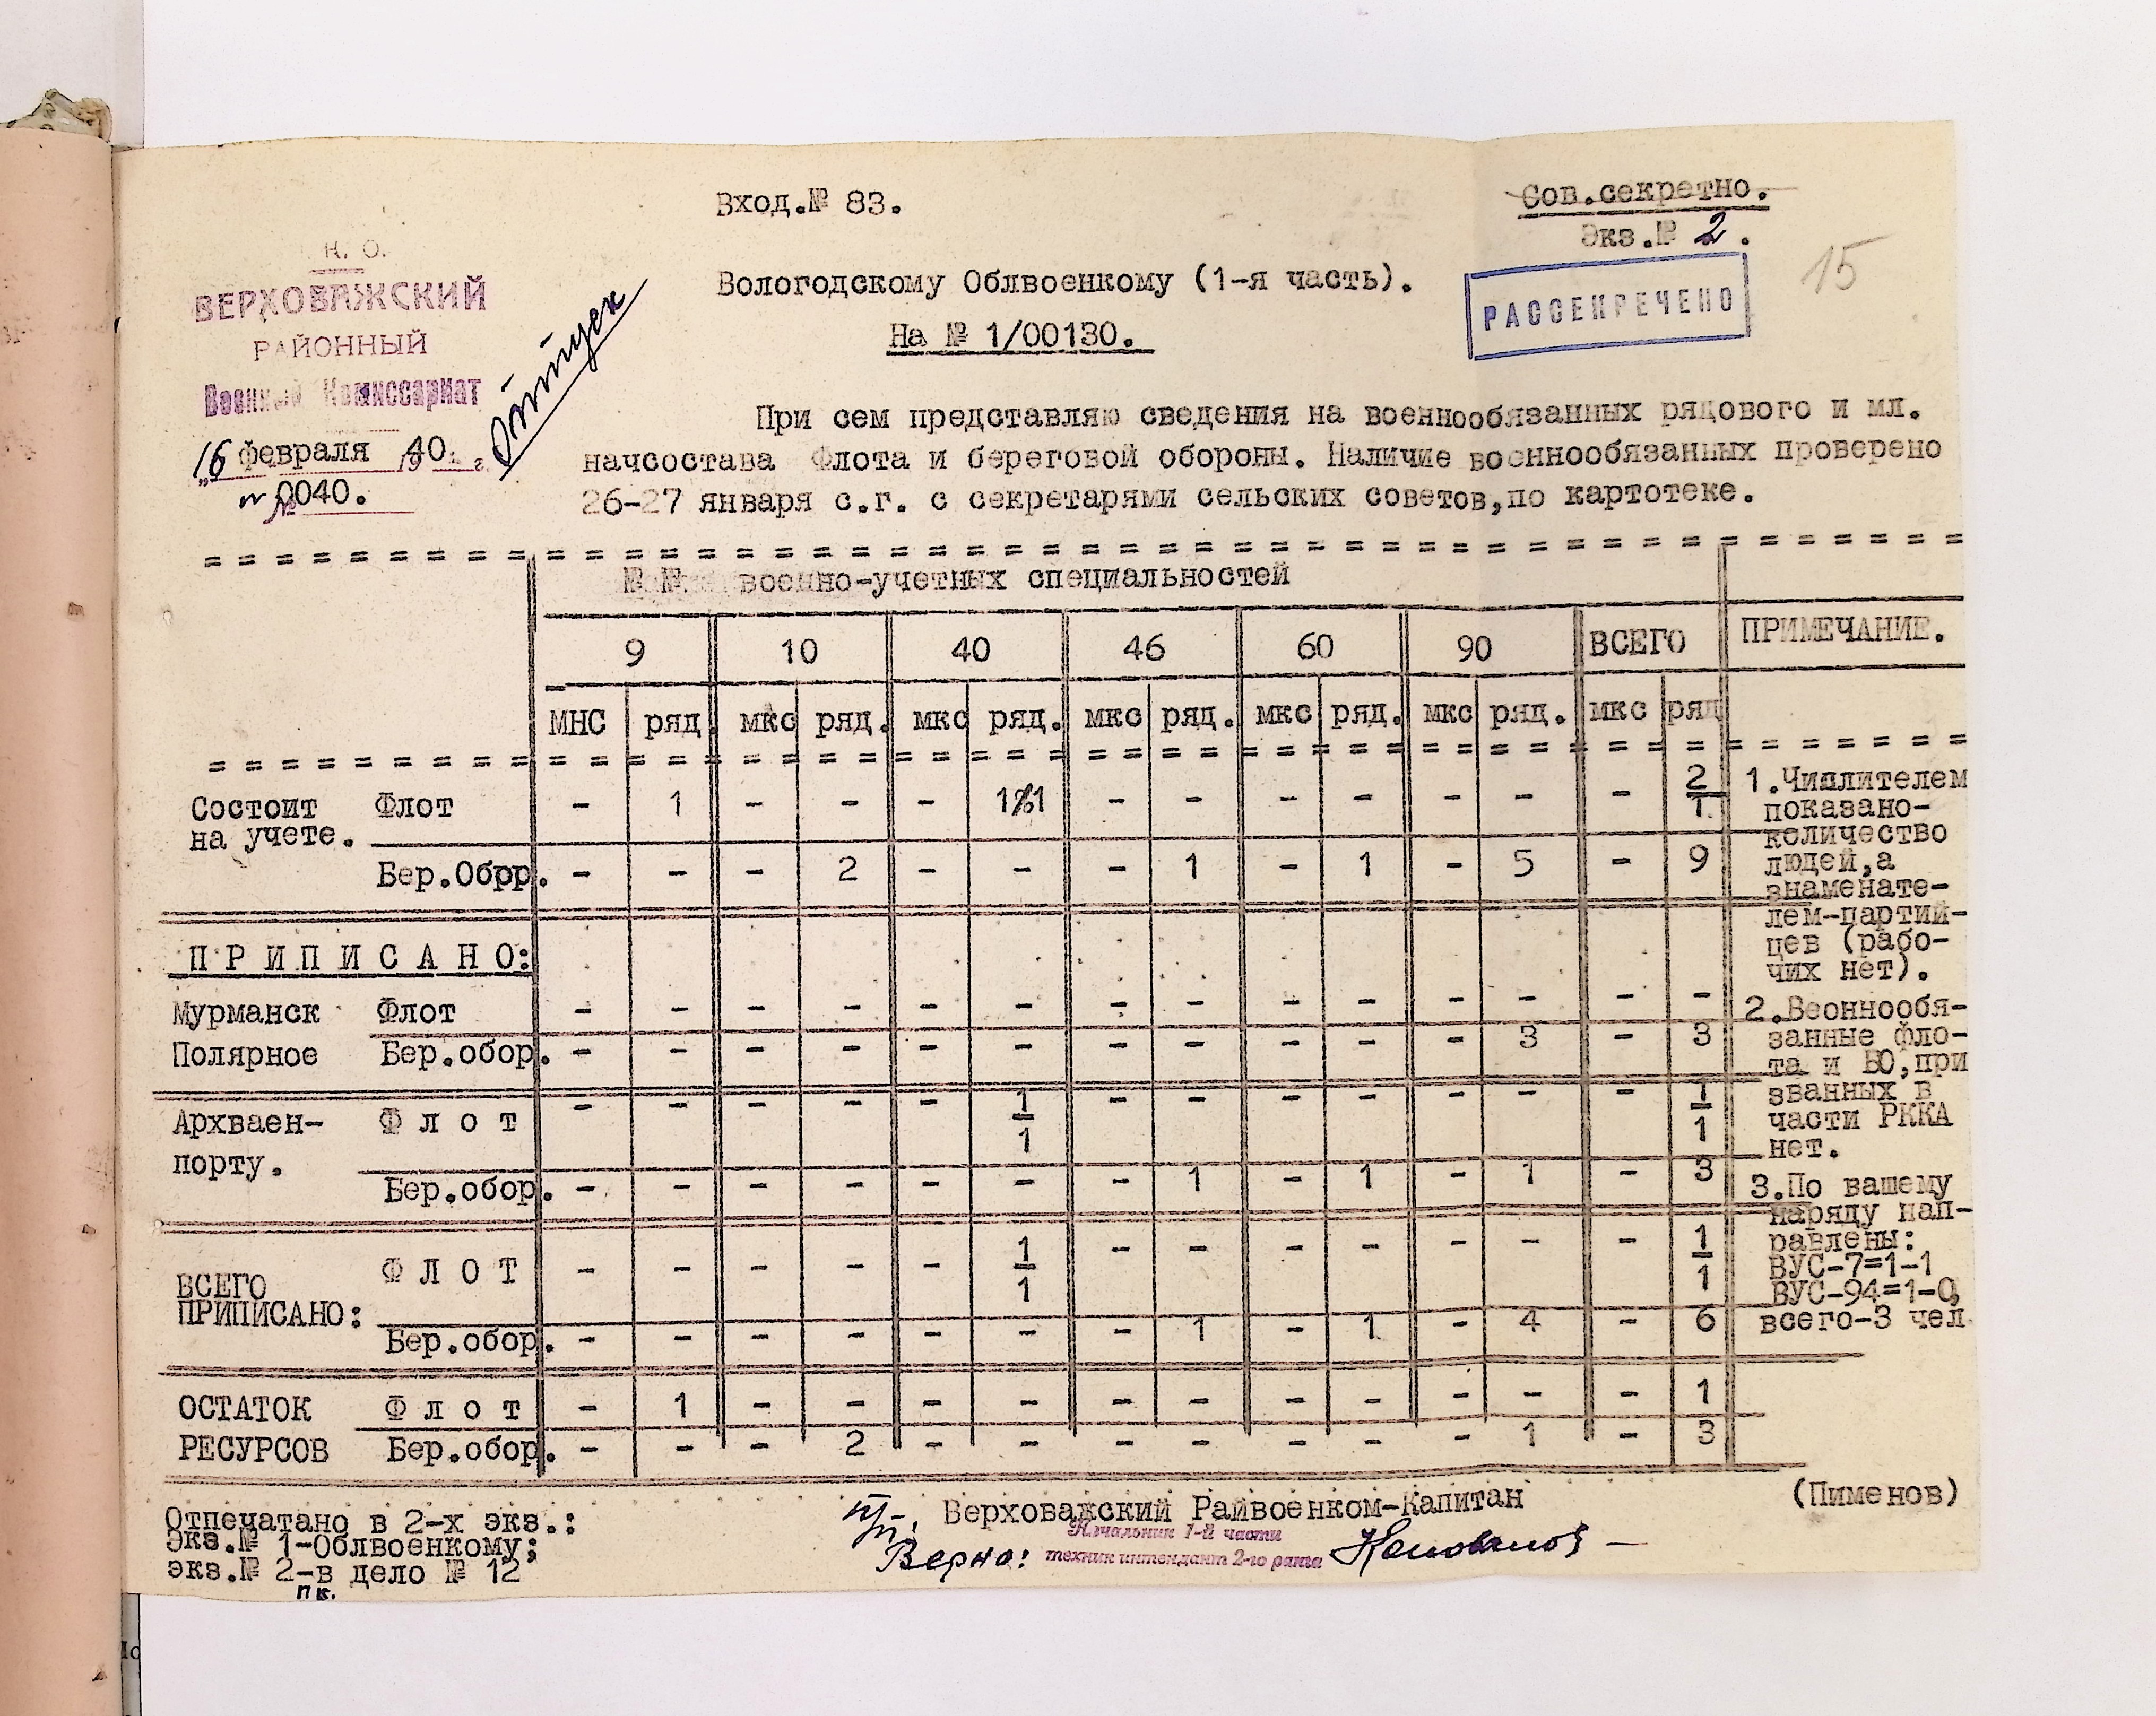 Вход.№ 83.
Сов.секретно.
Экз.№ 2.
15
Н. О.
ВЕРХОВАЖСКИЙ
РАЙОННЫЙ
Военный Комиссариат
"16 февраля 1940. г.
№ 0040.
Отпуск
Вологодскому Облвоенкому (1-я часть).
На № 1/00130.
РАССЕКРЕЧЕНО
При сем представляю сведения на военнообязанных рядового и мл.
начсостава Флота и береговой обороны. Наличие военнообязанных проверено
26-27 января с.г. с секретарями сельских советов,по картотеке.
№ № военно-учетных специальностей
9 10 40 46 60 90 ВСЕГО ПРИМЕЧАНИЕ.
МНС ряд. мкс ряд. мкс ряд. мкс ряд. мкс ряд. мкс ряд. мкс ряд
Состоит на учете. Флот - 1 - - - 1/1 - - - - - - - 2/1
Бер.Обрр. - - - 2 - - - 1 - 1 - 5 - 9
ПРИПИСАНО:
Мурманск Флот - - - - - - - - - - - - - -
Полярное Бер.обор. - - - - - - - - - - - 3 - 3
Архваен-порту. Флот - - - - - 1/1 - - - - - - - 1/1
Бер.обор. - - - - - - - 1 - 1 - 1 - 3
ВСЕГО ПРИПИСАНО: ФЛОТ - - - - - 1/1 - - - - - - - 1/1
Бер.обор. - - - - - - - 1 - 1 - 4 - 6
ОСТАТОК Флот - 1 - - - - - - - - - - - 1
РЕСУРСОВ Бер.обор. - - - 2 - - - - - - - 1 - 3
1.Числителем
показано-
количество
людей,а
знаменате-
лем-партий-
цев (рабо-
чих нет).
2.Веоннообя-
занные фло-
та и БО,при
званных в
части РККА
нет.
3.По вашему
наряду нап-
равлены:
ВУС-7=1-1
ВУС-94=1-0,
всего-3 чел.
Отпечатано в 2-х экз.:
Экз.№ 1-Облвоенкому;
экз.№ 2-в дело № 12
пк.
Верховажский Райвоенком-Капитан (Пименов)
Верно: Начальник 1-й части
техник интендант 2-го ранга